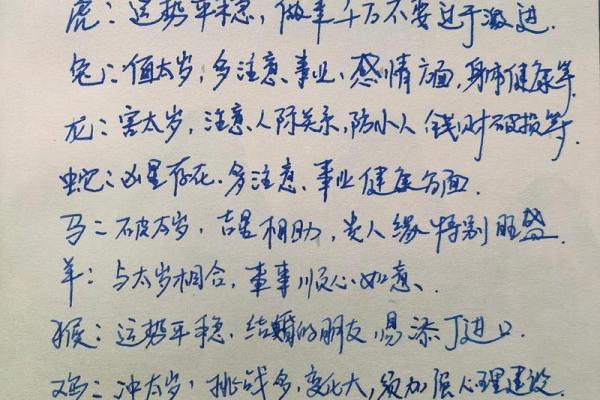 虎：运势平稳，做事千万不要过于激进.
兔：值太岁，多注意、事业、感情方面，身体健康等
龙：害太岁，注意人际关系，防小人 钱财破损等
蛇：凶星存在、多注意、事业健康方面.
马：破太岁，吉星相助，贵人缘特别旺盛.
羊：与太岁相合，事事顺心如意、
猴：运势平稳、结婚的朋友 易添丁进口.
鸡：冲太岁，挑战多，变化大，须加强心理建设.